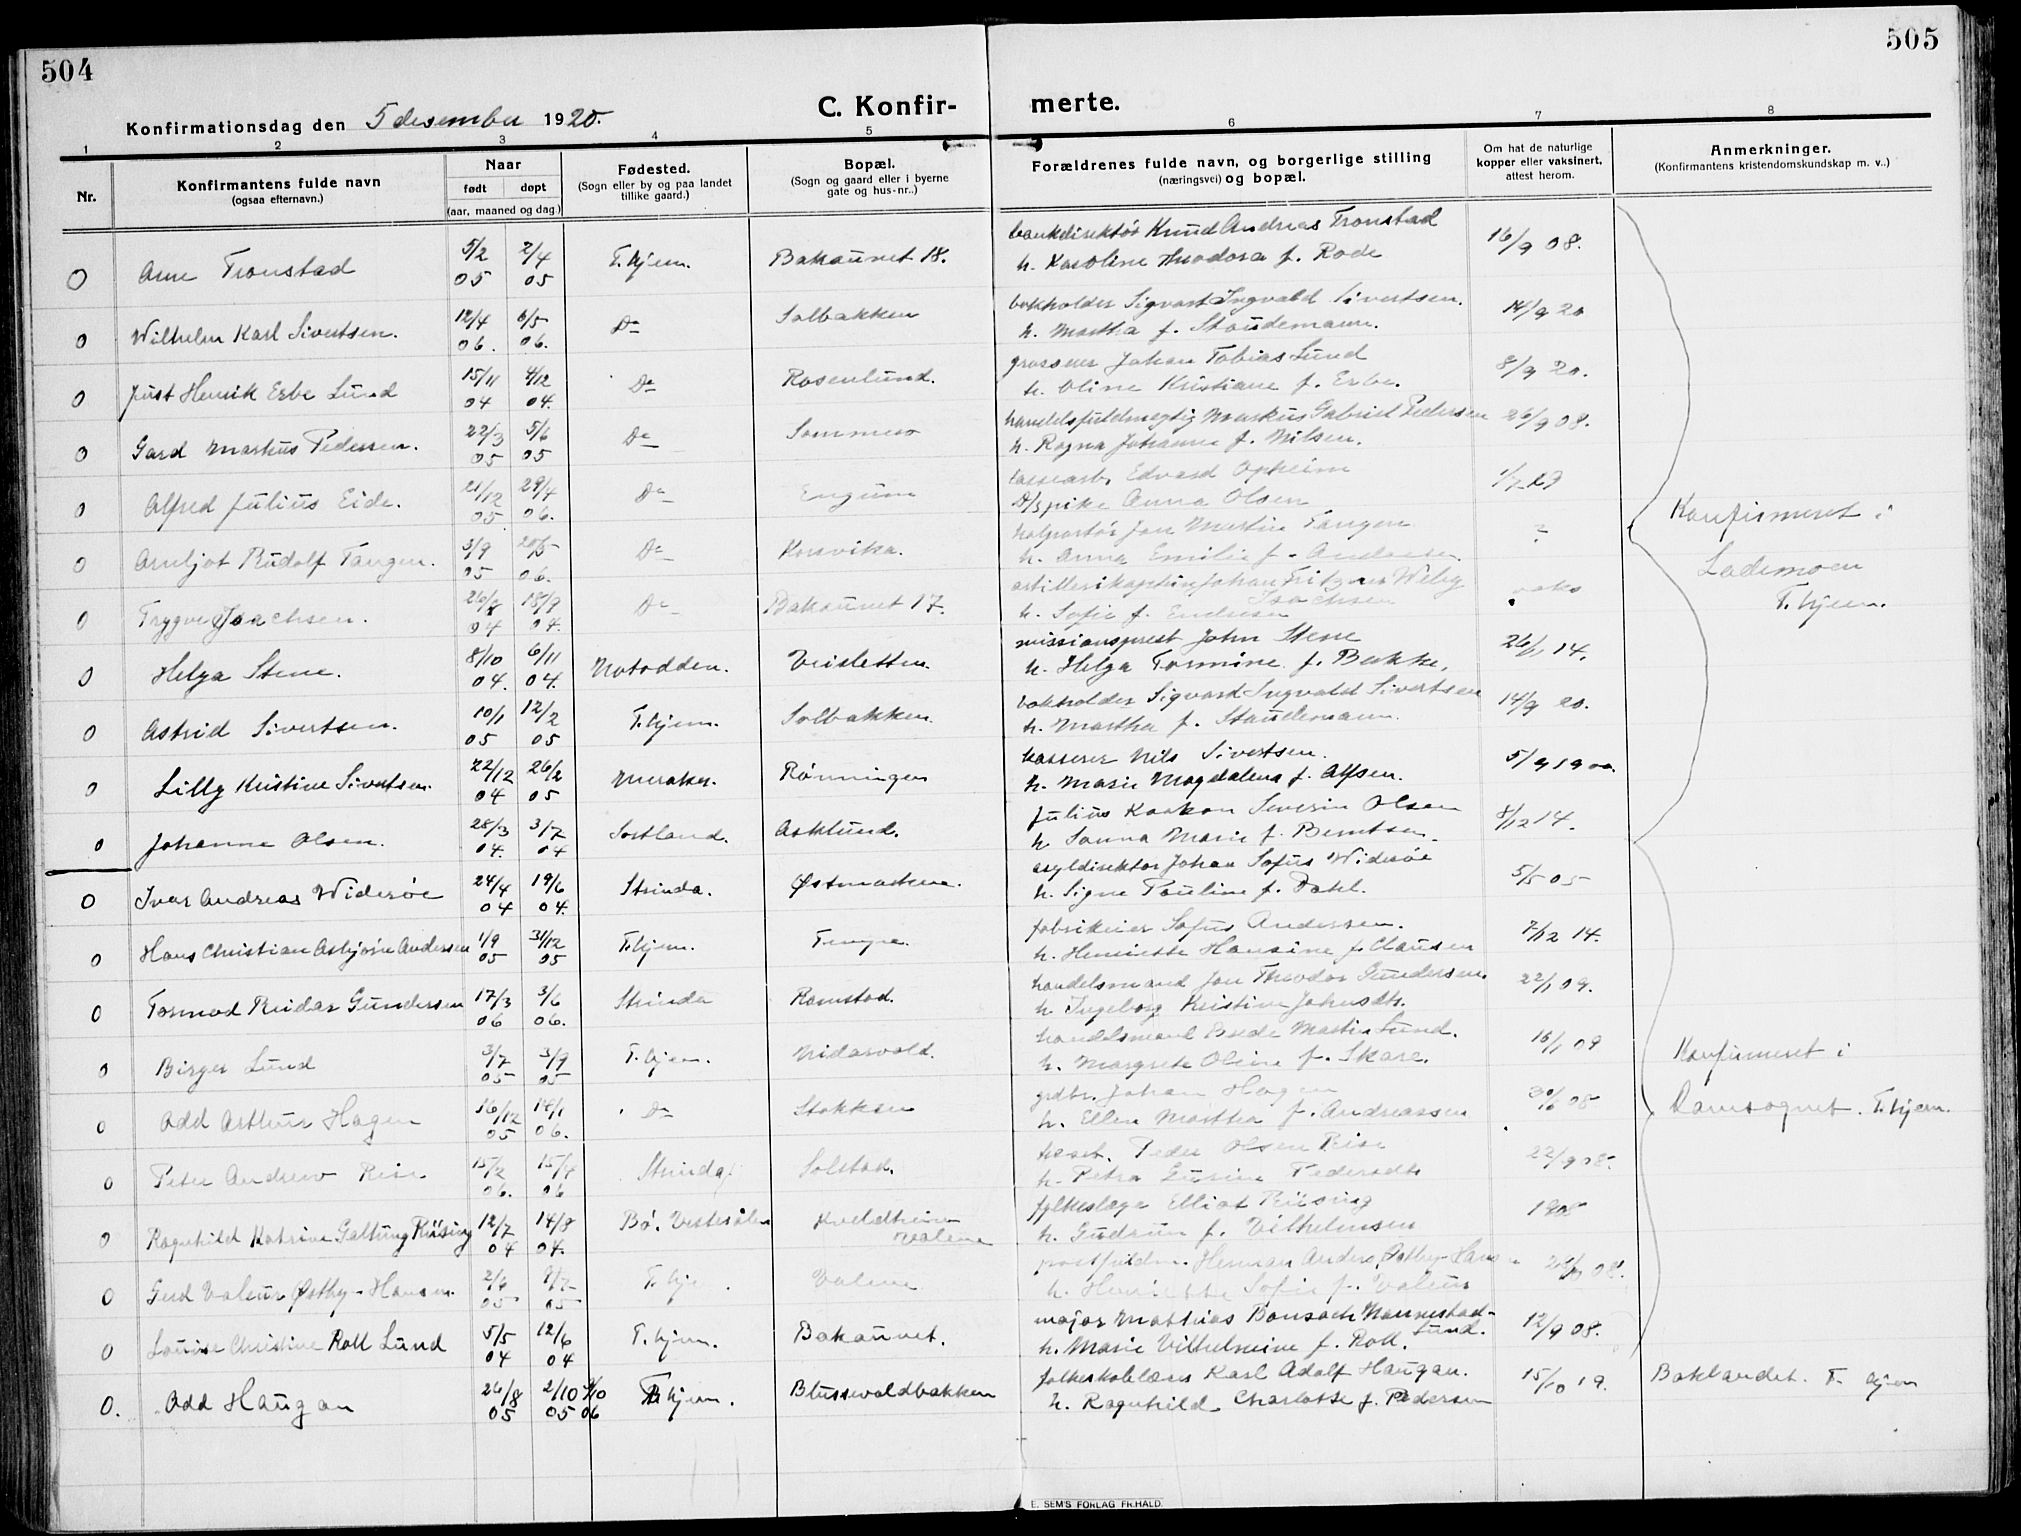 504
505
Konfirmationsdag den 5 desember 1920.
C. Konfir- merte.
1 2 3 4 5 6 7 8
Nr.
Konfirmantens fulde navn
(ogsaa efternavn.)
Naar
født døpt
(aar, maaned og dag.)
Fødested.
(Sogn eller by og paa landet
tillike gaard.)
Bopæl.
(Sogn og gaard eller i byerne
gate og hus-nr..)
Forældrenes fulde navn, og borgerlige stilling
(næringsvei) og bopæl.
Om hat de naturlige
kopper eller vaksinert,
attest herom.
Anmerkninger.
(Konfirmantens kristendomskundskap m. v..)
0 Arne Tronstad 5/2 05 2/4 05 T.hjem. Bakaunet 18. bankdirektør Knud Andreas Tronstad
h. Karoline Theodora f. Rode 16/9 08.
0 Wilhelm Karl Sivertsen. 12/4 06. 6/5 06. Do Solbakken bokholder Sigvart Ingvald Sivertsen.
h. Martha f. Staudemann. 14/9 20
0 Just Henrik Erbe Lund 15/11 04 4/12 04. Do Rosenlund. grosserer Johan Tobias Lund
h. Oline Kristiane f. Erbe. 8/9 20.
0 Gard Markus Pedersen. 22/3 05 5/6 05 Do Sommero handelsfuldmegtig Markus Gabriel Pedersen
h. Ragna Johanne f. Nilsen. 26/9 08.
0 Alfred Julius Eide. 21/12 05 29/4 06. Do Engum Edvard Opheim
pike Anna Olsen
0 Arnljot Rudolf Tangen. 3/9 05 20/5 06. Do Korsvika. Jon Martin Tangen
h. Anna Emilie f. ?
0 Trygve Isachsen. 04 18/9 04. Do Bakaunet 17. artillerikaptein Johan Fritzner Wiby
Isachsen
h. Sofie f.
0 Helga Stene. 8/10 04. 6/11 04. Notodden. Veisletten. missionsprest John Stene
h. Helga Tormine f. Bakke. 26/1 14.
0 Astrid Sivertsen. 10/1 05 12/2 05 T.hjem. Solbakken. bokholder Sigvard Ingvald Sivertsen
h. Martha f. Staudemann. 14/9 20.
0 Lilly Kristine Sivertsen. 22/12 04 26/2 05 Meraker. Rønningen kasserer Nils Sivertsen.
h. Marie Magdalena f. Alfsen. 5/9 1900.
0 Johanne Olsen. 28/3 04. 3/7 04 Sortland. Asklund. Julius Haakon Severin Olsen
h. Sanna Marie f. Berntsen. 8/12 14.
Konfirmeret i
Lademoen
T.hjem.
0 Ivar Andreas Widerøe 24/4 04 19/6 04. Strinda. Østmarken. asyldirektør Johan Sofus Widerøe
h. Signe Pauline f. Dahl. 5/5 05
0 Hans Christian Asbjørn Andersen 1/9 05 31/12 05 T.hjem. Tempe. fabrikeier Sofus Andersen.
h. Henriette Hansine f. Clausen 7/12 14.
0 Tormod Reidar Gundersen 17/3 06 3/6 06. Strinda Ramstad. handelsmand Jon Theodor Gundersen.
h. Ingeborg Kristine Johnsdtr. 22/1 09.
0 Birger Lund 3/7 05 3/9 05 T.hjem. Nidarvold. handelsmand Brede Martin Lund.
h. Margrete Oline f. Skare. 16/1 09
0 Odd Arthur Hagen 16/12 05 14/1 06. Do Stokken grdbr. Johan Hagen
h. Ellen Martha f. Andreassen
0 Peter Andreas Rise 15/2 06. 15/4 06 Strinda. Solstad. Peder Olsen Rise
h. Petra Pedersdtr. 22/9 08.
0 Ragnhild Katrine Galtung Riising 12/7 04 14/8 04. Bø. Vesteraalen Kveldheim
Valene fylkeslege Elliot Riising
h. Gudrun f. Vilhelmsen 1908
0 Gerd Valeur Østby-Hansen. 2/6 05 05 T.hje . Valene Herman Anders Østby-Hansen
h. Henriette Sofie f. Valeur
0 Louise Christine Roll Lund 5/5 04 12/6 04 T.hjem. Bakaunet. major Matthias Bonsach Nannestad-
Lund.
h. Marie Vilhelmine f. Roll. 12/9 08.
Konfirmeret i
Domsognet. T.hjem.
0. Odd Haugan 26/8 05 2/10 05 06 T.hjem. Blussevoldbakken folkeskolelærer Karl Adolf Haugan.
h. Ragnhild Charlotte f. Pedersen 15/10 19. Baklandet. T. hjem
E. SEM'S FORLAG FR.HALD.